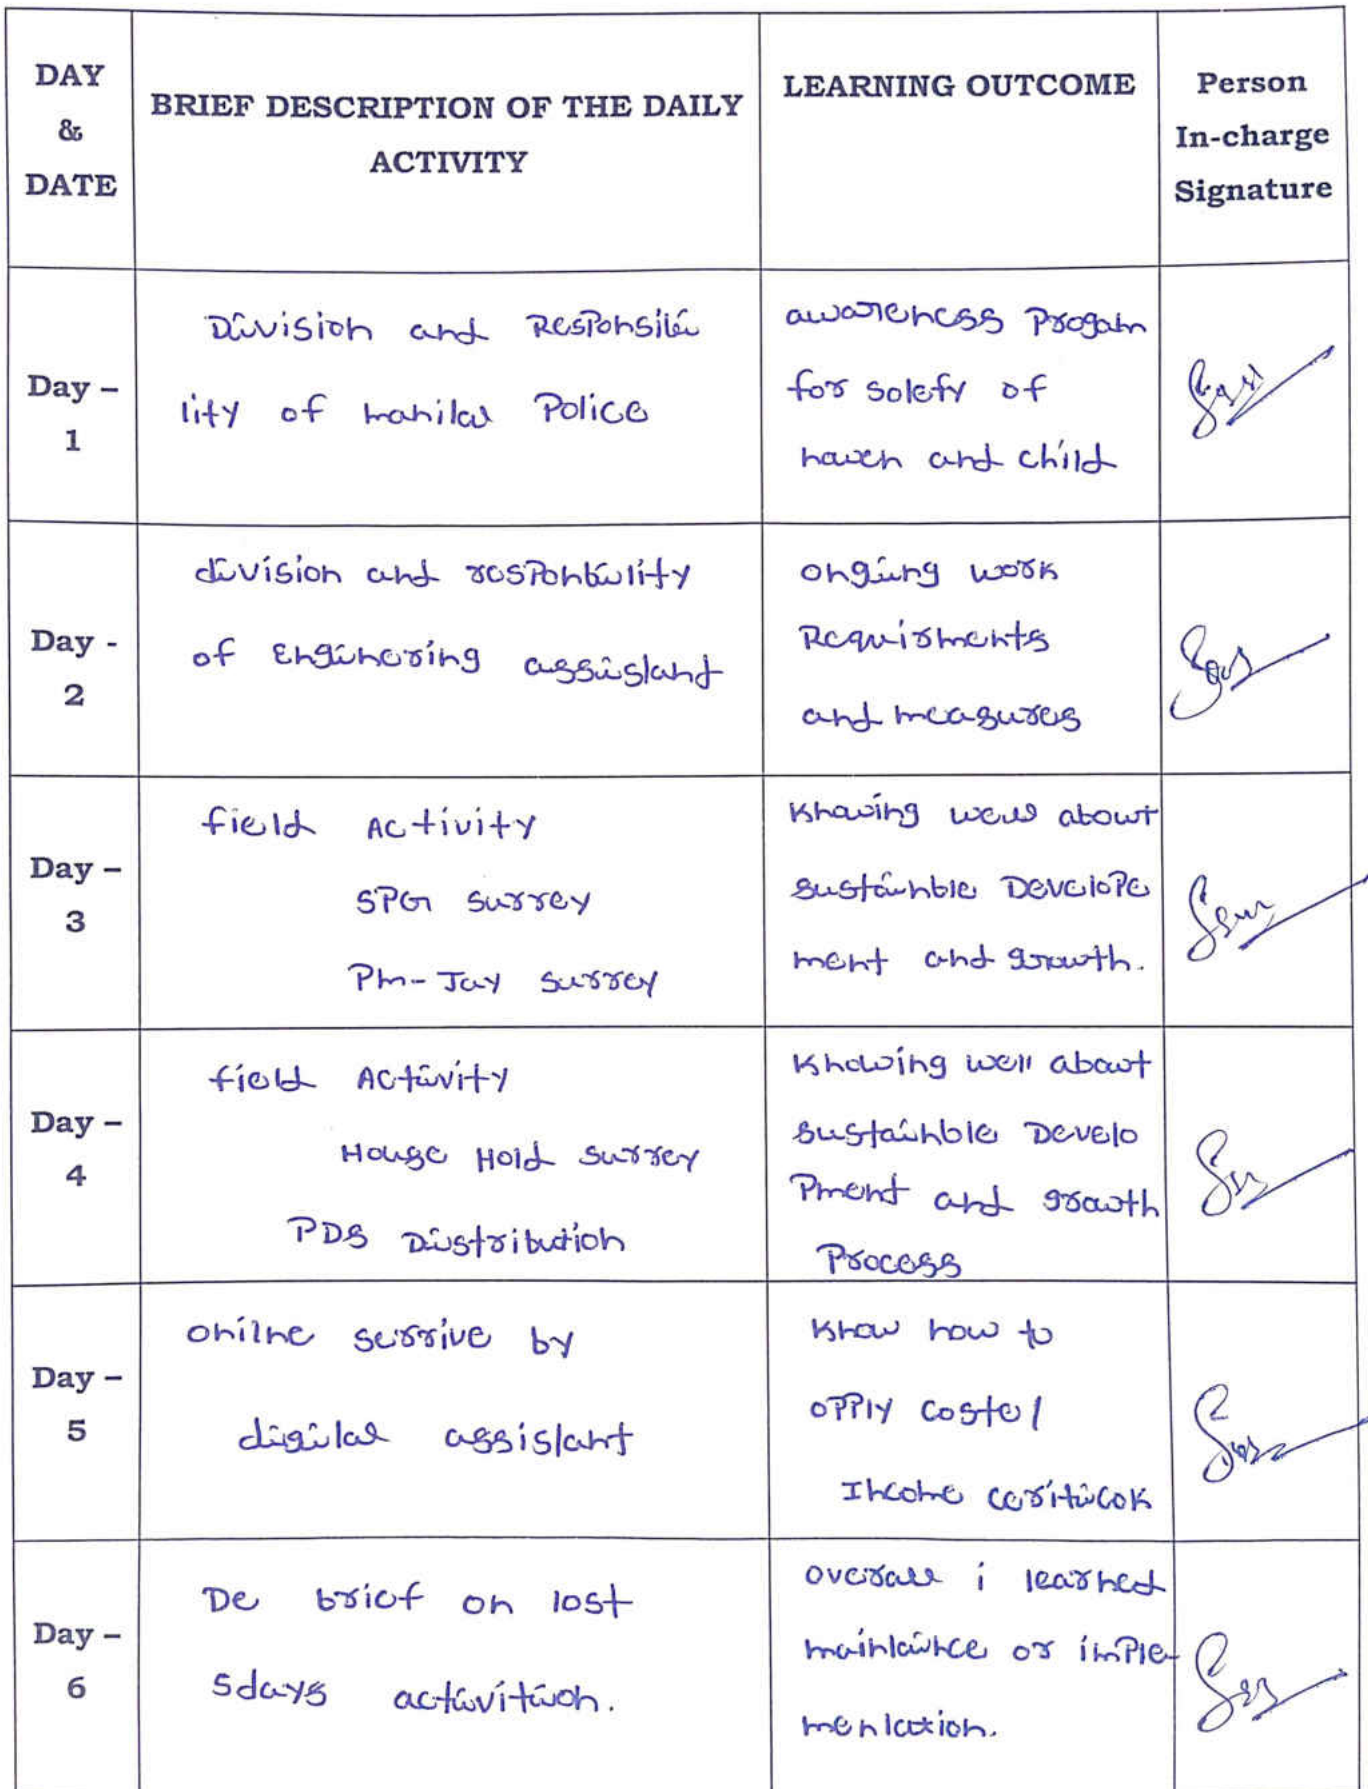 DAY & DATE
BRIEF DESCRIPTION OF THE DAILY ACTIVITY
LEARNING OUTCOME
Person In-charge Signature
Day – 1
Division and Responsibi
lity of mahila Police
awareness Progam
for safety of
and child
Day - 2
division and responbility
of Enginering assistant
onging work
Requirments
and measures
Day – 3
field Activity
SPG survey
Pm-Jay survey
Knowing well about
sustainble Develope
ment and growth.
Day – 4
field Activity
House Hold survey
PDS Distribution
Knowing well about
sustainble Develo
Pment and growth
Process
Day – 5
onilne servive by
digital assistant
Know how to
apply caste/
Income
Day – 6
De brief on last
5days
overall i learned
maintaince or imple-
mentation.